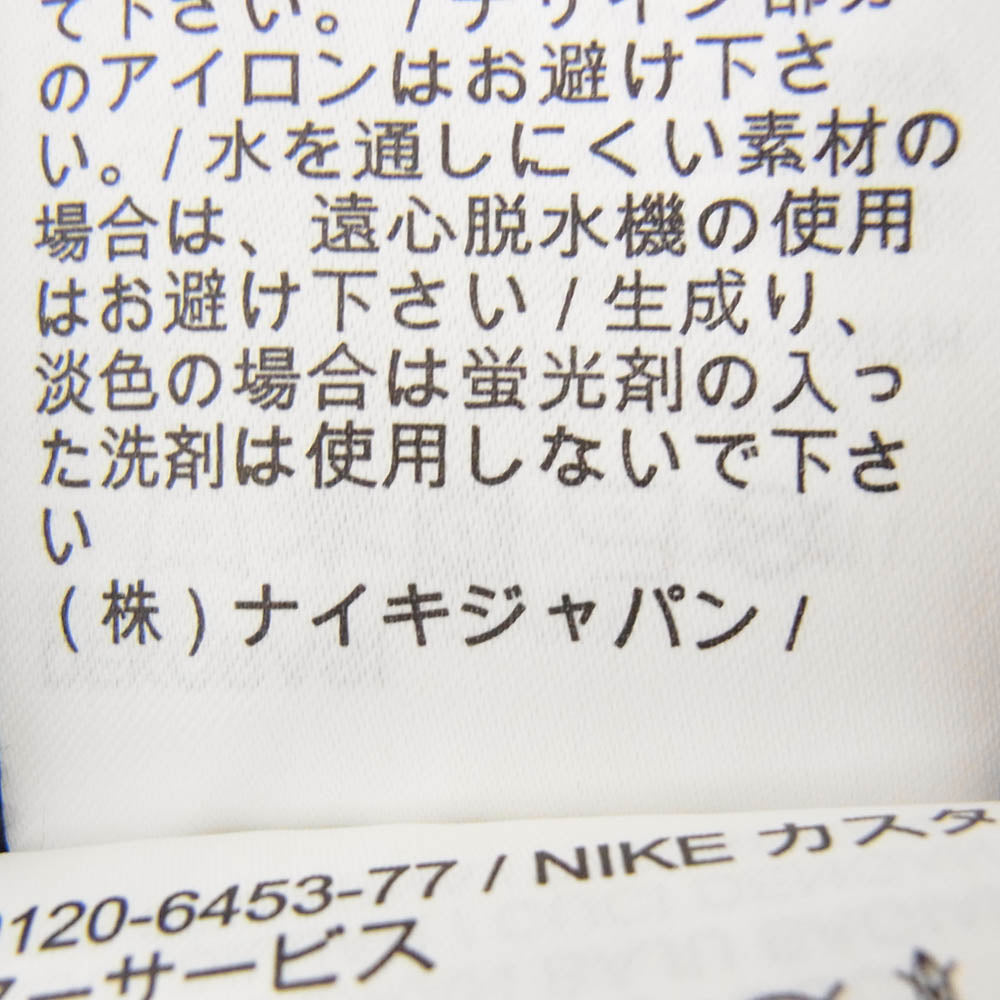 て下さい。/デザイン部分
のアイロンはお避け下さ
い。/水を通しにくい素材の
場合は、遠心脱水機の使用
はお避け下さい/生成り、
淡色の場合は蛍光剤の入っ
た洗剤は使用しないで下さ
い
(株)ナイキジャパン/
0120-6453-77 / NIKE カスタ
マーサービス